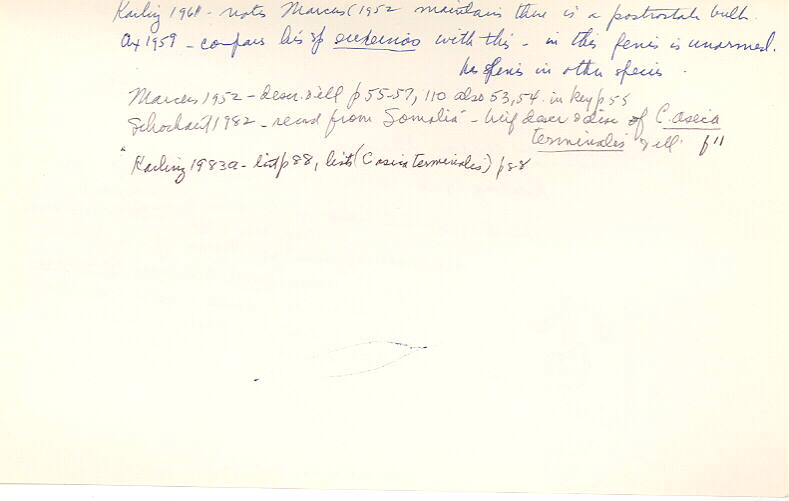 Karling 1964 - notes Marcus (1952 maintains there is a postrostah bulb.
Ax 1959 - compares his sp euxeinos with this - in this penis is unarmed.
has spenis in other species.
Marcus 1952 - descr. & ill p 55-57, 110 also 53, 54. in key p 55
Schockaert 1982 - record from Somalia - brief descr & disc of C. aseia
terminales & ill. p 11
Karling 1983a - list p 88, lists (C aseia terminales) p 88